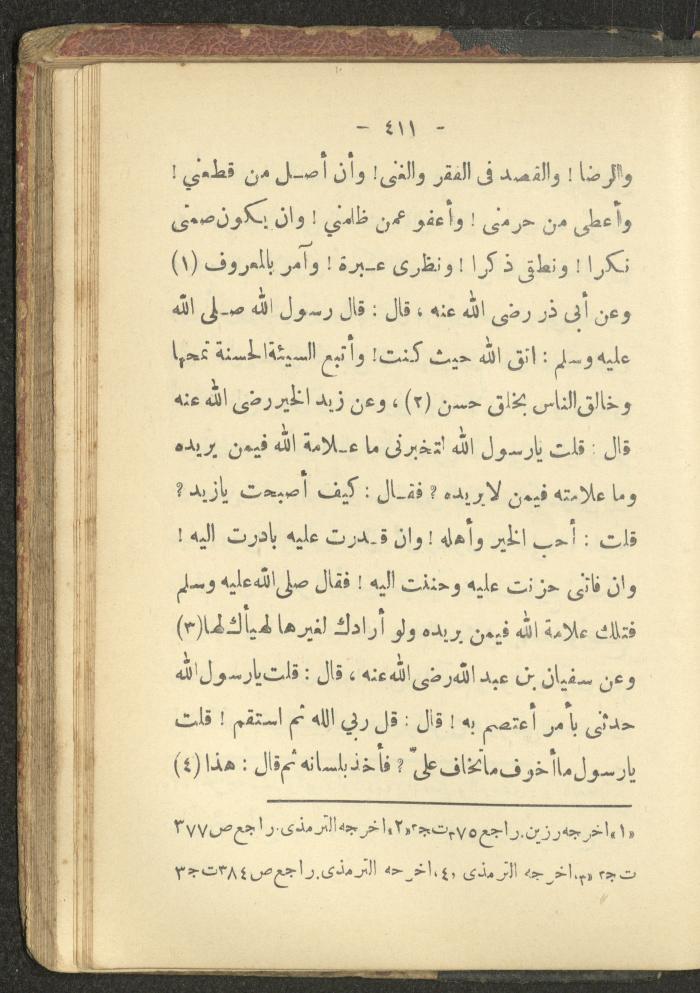 - ٤١١ -
والرضا ! والقصد فى الفقر والغنى! وأن أصـل من قطعني !
وأعطى من حرمنى ! وأعفو عمن ظلمني ! وان يكون صمتى
فكرا ! ونطقى ذكرا ! ونظرى عـبرة ! وآمر بالمعروف (١)
وعن أبى ذر رضى الله عنه ، قال : قال رسول الله صـلى الله
عليه وسلم : اتق الله حيث كنت! وأتبع السيئة الحسنة تمحها
وخالق الناس بخلق حسن (٢) ، وعن زيد الخير رضى الله عنه
قال : قلت يارسول الله اتخبرنى ما عـلامة الله فيمن يريده
وما علامته فيمن لايريده ? فقـال : كيف أصبحت يازيد ?
قلت : أحب الخير وأهله ! وان قـدرت عليه بادرت اليه !
وان فاتنى حزنت عليه وحننت اليه ! فقال صلى الله عليه وسلم
فتلك علامة الله فيمن يريده ولو أرادك لغيرها لهيأك لها(٣)
وعن سفيان بن عبد الله رضى الله عنه ، قال : قلت يارسول الله
حدثنى بأمر أعتصم به ! قال : قل ربي الله ثم استقم ! قلت
يارسول ماأخوف ماتخاف علىّ ? فأخذ بلسانه ثم قال : هذا (٤)
«١» اخرجه رزين. راجع ٧٥م ت ج٢ «٢» اخرجه الترمذى. راجع ص ٣٧٧
ت ج٢ «٣» اخرجه الترمذى «٤» اخرجه الترمذى. راجع ص ٣٨٤ ت ج ٣